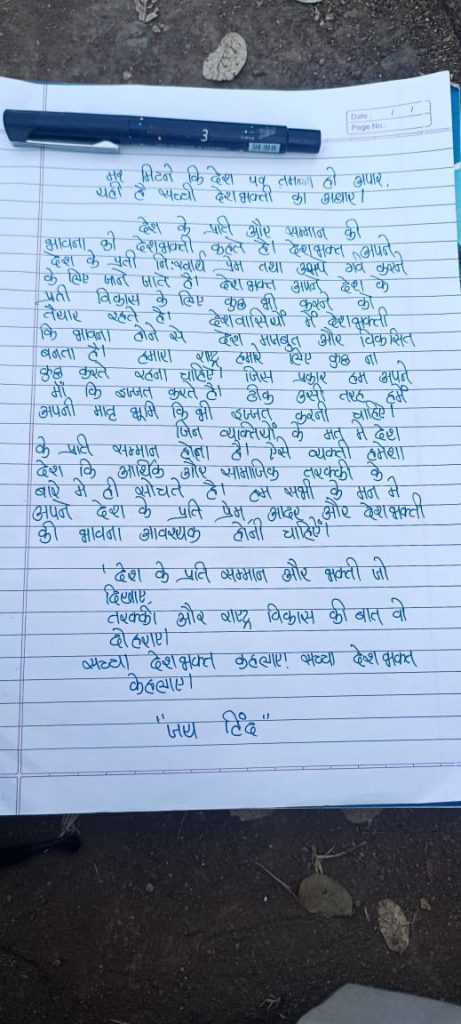 Date : / /
Page No.:
3
मर मिटने कि देश पर तमन्ना हो अपार,
यही है सच्ची देशभक्ती का अधार।
देश के प्रति और सम्मान की
भावना को देशभक्ती कहते है। देशभक्त अपने
देश के प्रती नि:स्वार्थ प्रेम तथा उसपे गर्व करने
के लिए जाने जाते है। देशभक्त अपने देश के
प्रती विकास के लिए कुछ भी करने को
तैयार रहते है। देशवासियों में देशभक्ती
कि भावना होने से देश मजबुत और विकसित
बनता है। हमारा राष्ट्र हमारे लिए कुछ ना
कुछ करते रहना चाहिए। जिस प्रकार हम अपने
माँ कि इज्जत करते है। ठीक उसी तरह हमें
अपनी मातृ भूमि कि भी इज्जत करनी चाहिए।
जिन व्यक्तियों के मन में देश
के प्रति सम्मान होना है। ऐसे व्यक्ती हमेशा
देश कि आर्थिक और सामाजिक तरक्की के
बारे मे ही सोचते है। हम सभी के मन मे
अपने देश के प्रति प्रेम, आदर और देशभक्ती
की भावना आवश्यक होनी चाहिएँ।
' देश के प्रति सम्मान और भक्ती जो
दिखाए,
तरक्की और राष्ट्र विकास की बात वो
दोहराए।
सच्चा देशभक्त कहलाए! सच्चा देशभक्त
केहलाए।
"जय हिंद"